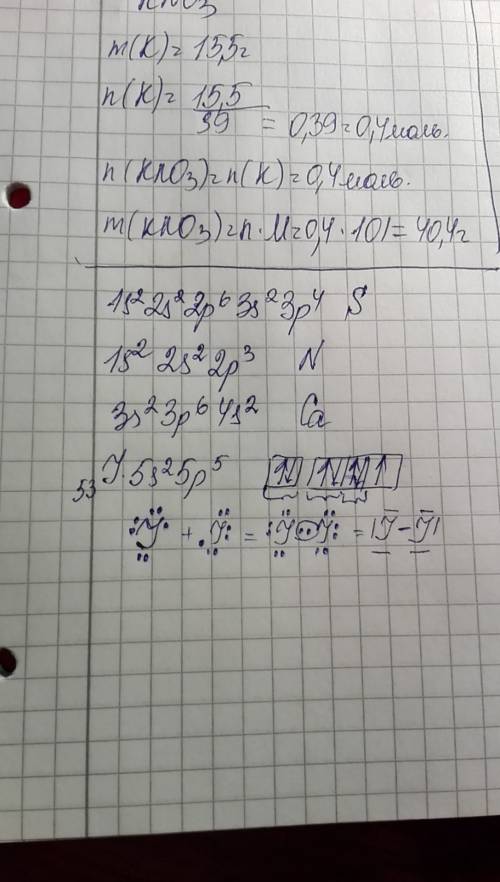 KNO3
m(K)= 15,5г
n(K)= 15,5/39 = 0,39=0,4моль.
n(KNO3)=n(K)=0,4моль.
m(KNO3)=n·M=0,4·101=40,4г
1s² 2s² 2p⁶ 3s² 3p⁴ S
1s² 2s² 2p³ N
3s² 3p⁶ 4s² Ca
₅₃J. 5s² 5p⁵
J + J = J J = |J̅ – J̅|